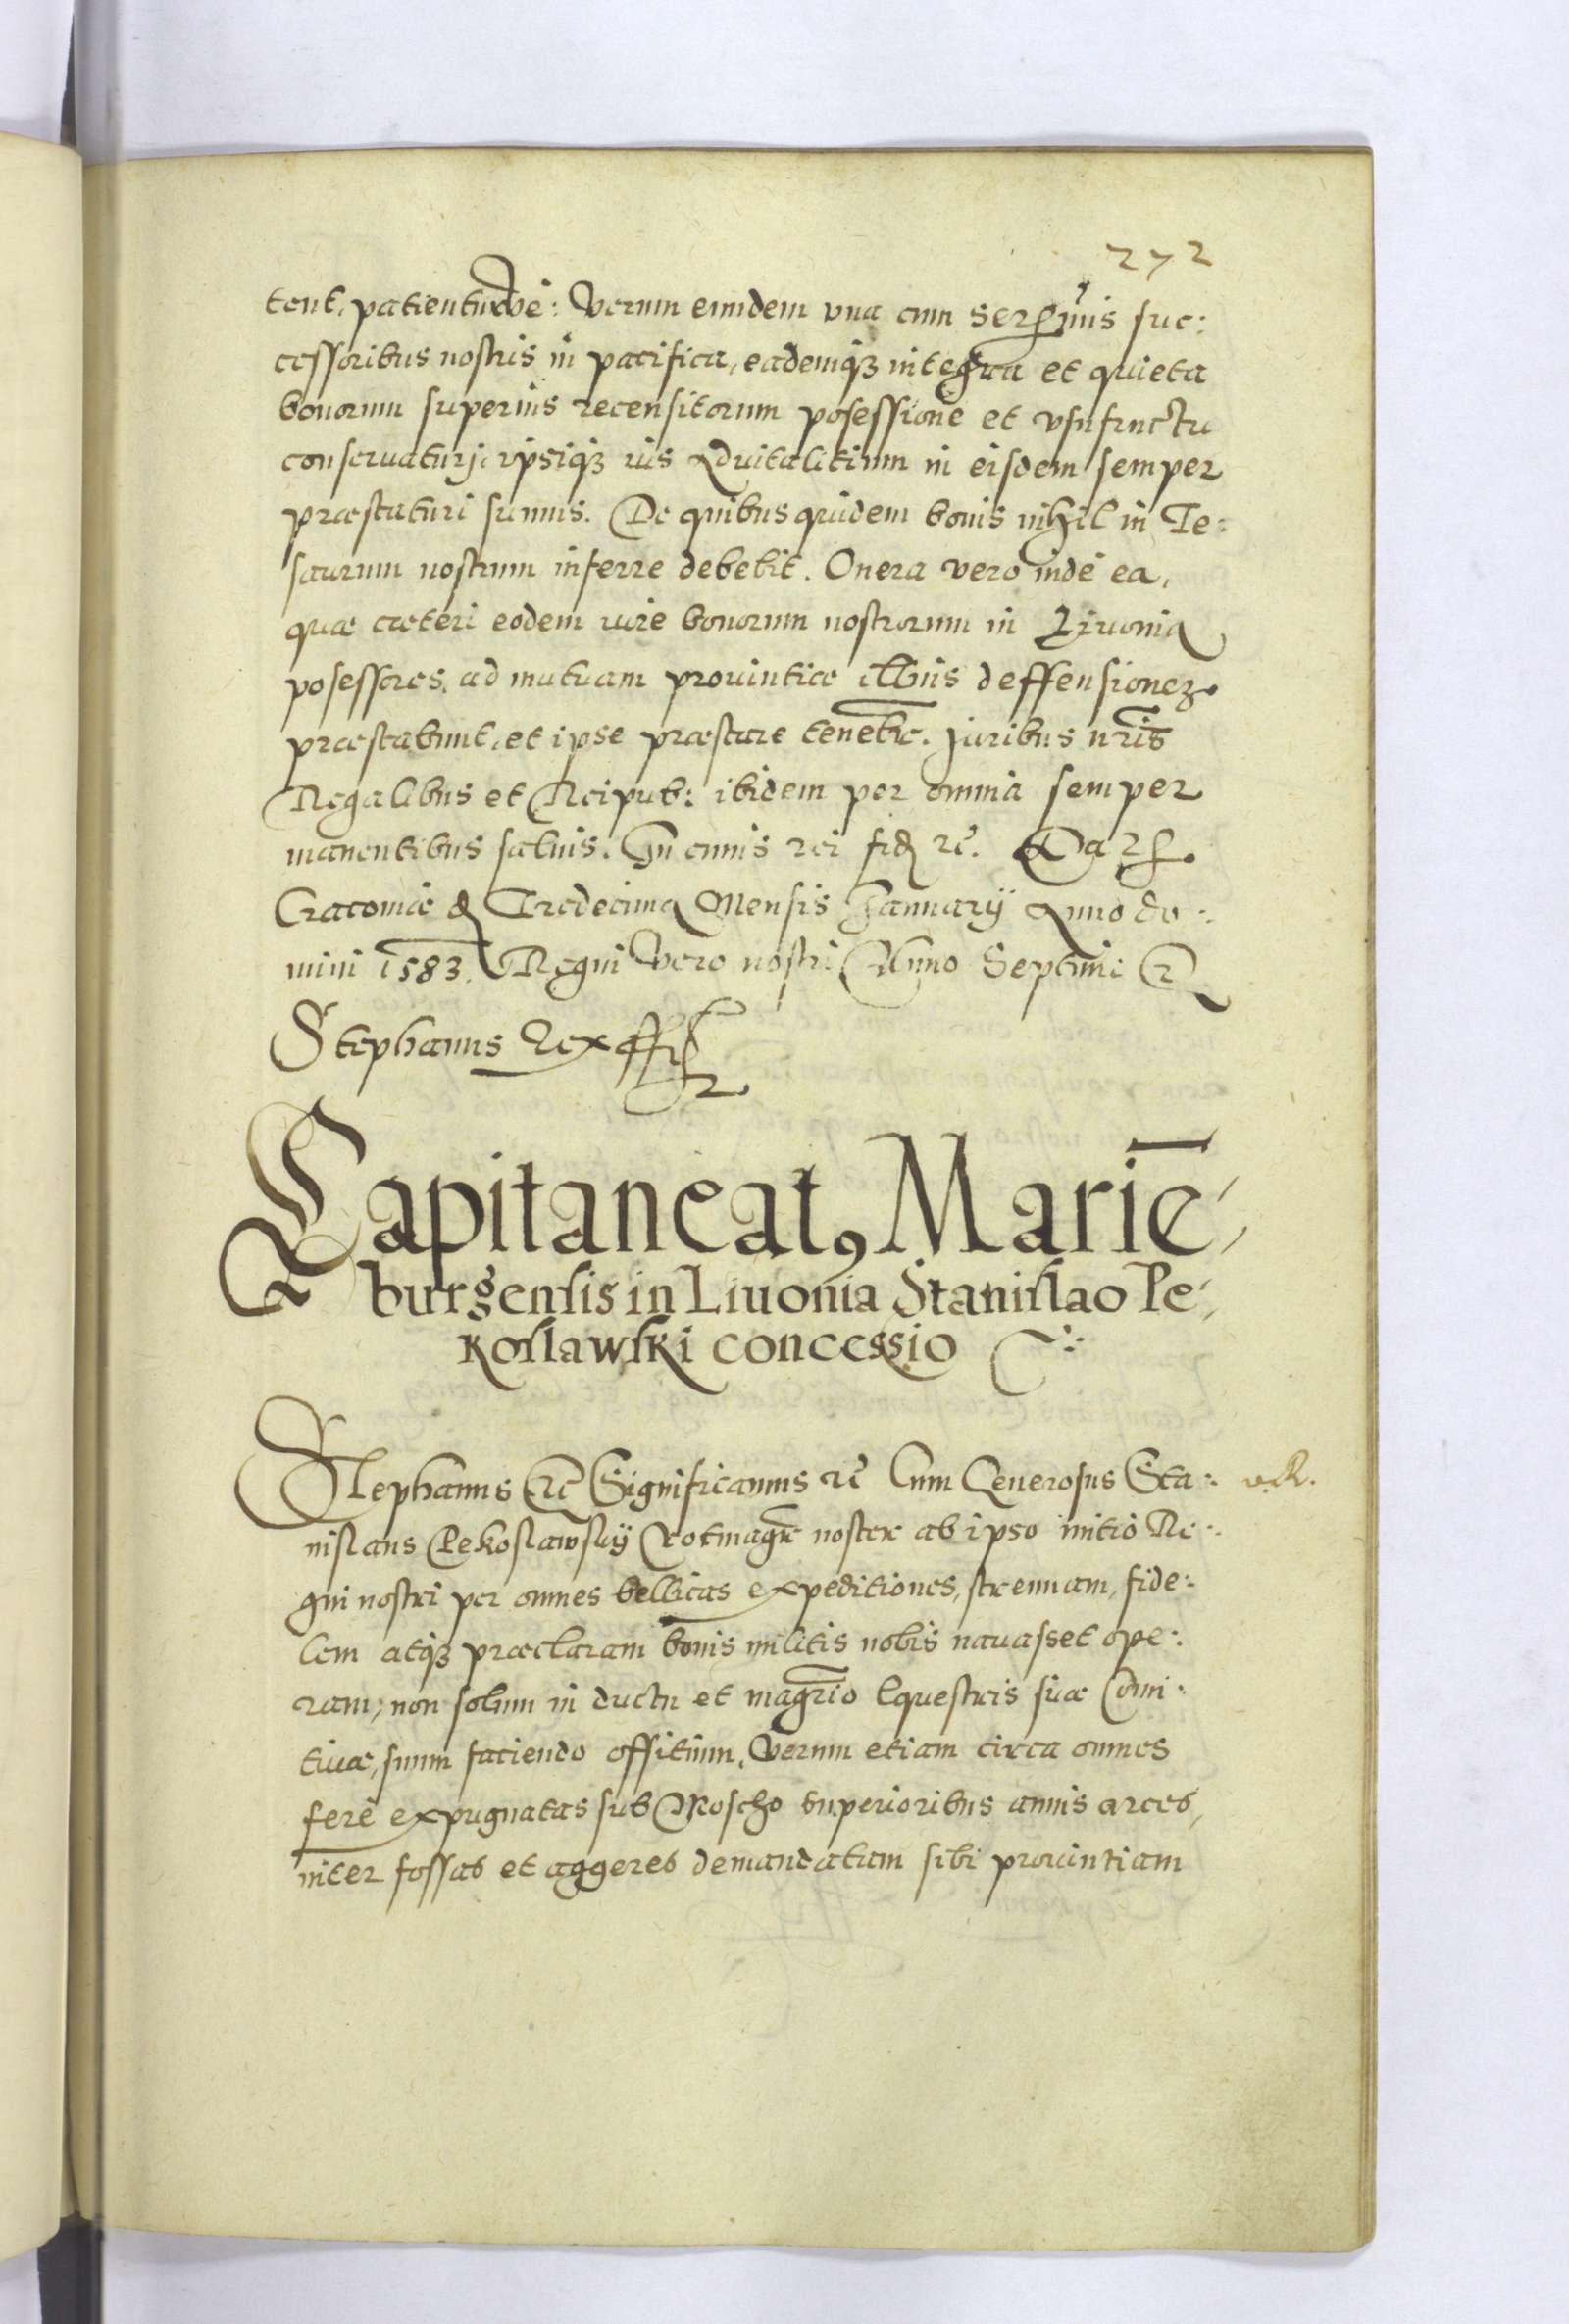 272
tent, patienturve: Verum eundem vna cum Serẽmis suc:
cessoribus nostris in pacifica, eademq̃ integra et quieta
bonorum superius recensitorum posessione et vsufructu
conseruaturj, ipsiq̃ ius Aduitalitium in eisdem semper
præstaturi sumus. De quibus quidem bonis nihil in Te:
saurum nostrum inferre debebit. Onera vero inde ea,
quæ cæteri eodem iure bonorum nostrorum in Liuonia
posessores, ad mutuam prouintiæ illius deffensionez
præstabunt, et ipse præstare tenebĩt. Juribus nr̃is
Regalibus et Reipub: ibidem per omnia semper
manentibus saluis. In cuius rei fid rc̃. Dat
Cracouiæ d Tredecima Mensis Januarÿ Anno do:
mini 1583. Regni Vero nostri Anno Septimo
Stephanus Rex sst
Capitaneat9 Mariē
burgensis in Liuonia Stanislao Pe
koslawski concessio
Stephanus etc̃ Significamus rc̃ Cum Generosus Sta:
nislaus Pekoslawskÿ Rotmagr̃ noster ab ipso initio Re:
gni nostri per omnes bellicas expeditiones, strenuam, fide:
lem atq̃ præclaram bonis militis nobis nauasset ope:
ram; non solum in ductu et magr̃io Equestris suæ Comi:
tiuæ, suum faciendo offitium, Verum etiam circa omnes
ferè expugnatas sub Moscho superioribus annis arces,
inter fossas et aggeres demandatam sibi prouintiam